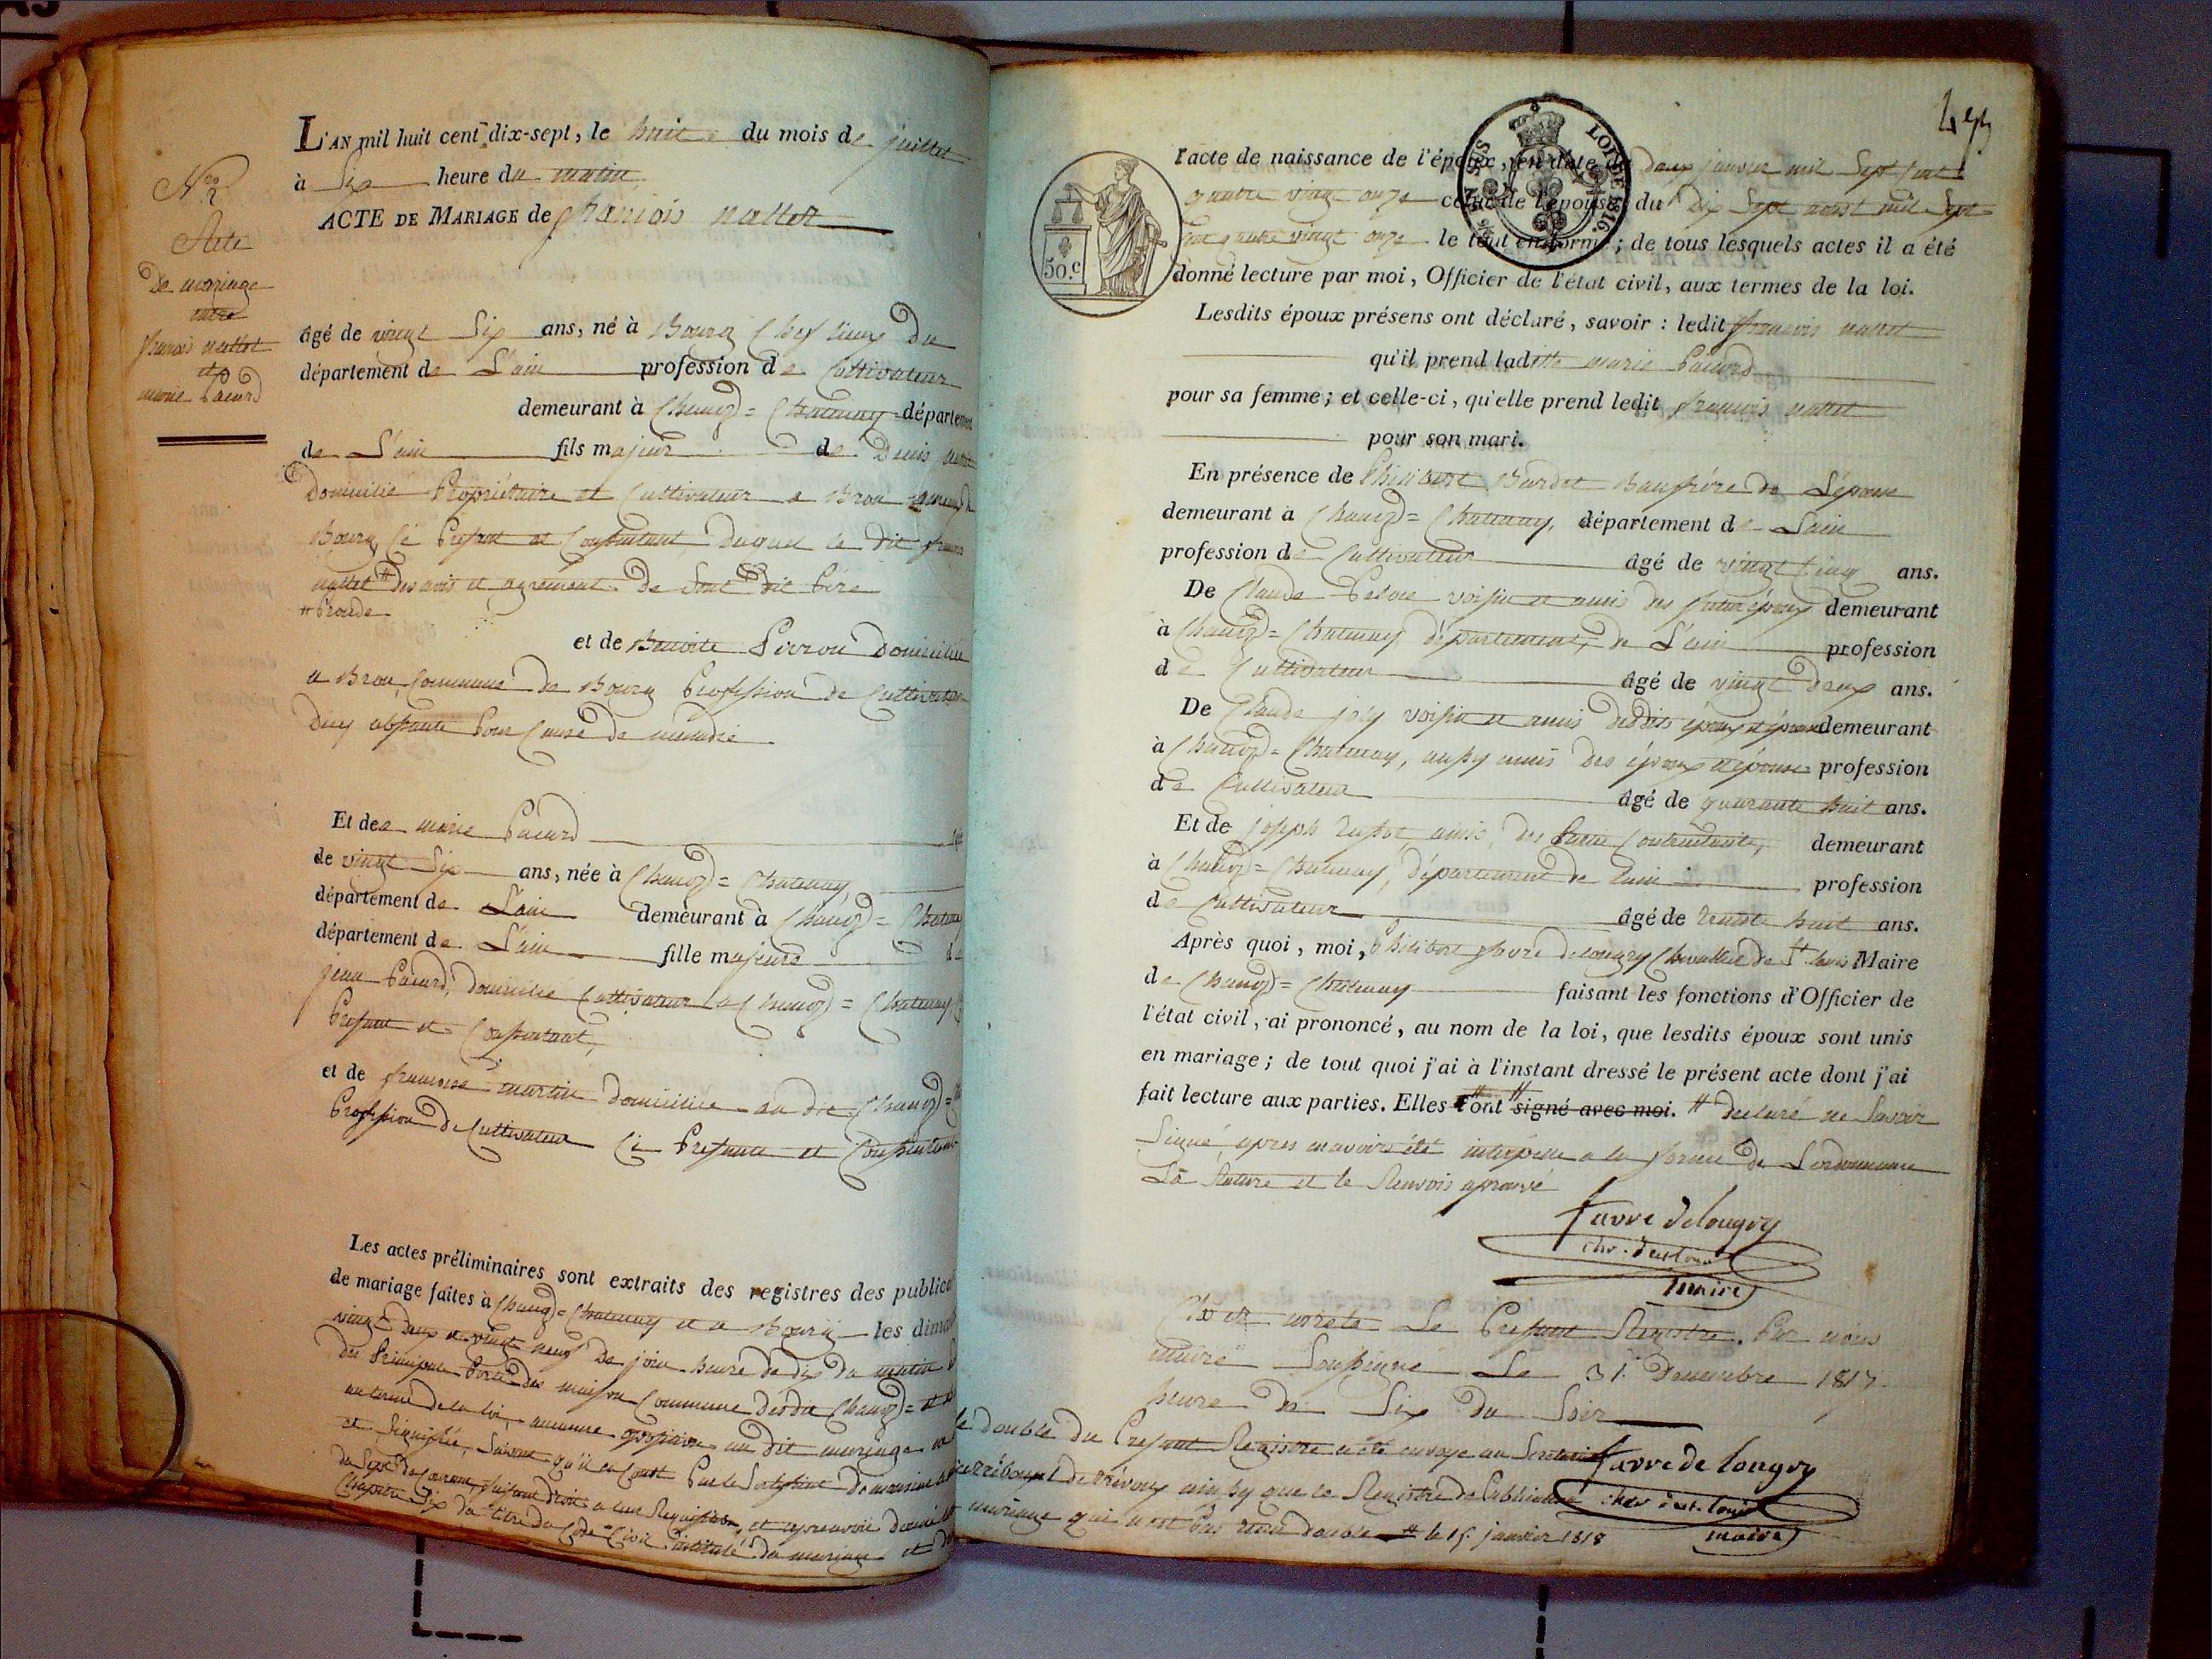 L'AN mil huit cent dix-sept, le huit du mois de juillet
à Six heure du matin
ACTE DE MARIAGE de francois nallet
N.º 2
Acte
De mariage
entre
francois nallet
et
marie Pacard
âgé de vingt Six ans, né à Bourg Chef lieux Du
département de L'ain profession de Cultivateur
demeurant à Chanoz = Chatenay département
de L'ain fils majeur de Denis nallet
Domicilié Propriétaire et Cultivateur a Brou
Bourg Ci Present et Consentant Duquel le dit francois
nallet # des avis et agrement De Sont dit Père
# Procede
et de Benoite Domiciliée
a Brou, Commune De Bourg Profession De Cultivateur
absante Pour Cause De maladie
Et de marie Pacard
de vingt Six ans, née à Chanoz = Chatenay,
département de L'ain demeurant à Chanoz = Chatenay
département de L'ain fille majeure de
jean Pacard, Domicilié Cultivateur a Chanoz = Chatenay
Present et Consentant,
et de francoise martin Domiciliée au dit Chanoz =
Profession De Cultivateur Ci Presente et Consentante
Les actes préliminaires sont extraits des registres des publica
de mariage faites à Chanoz = Chatenay et a Bourg les dima
vingt Deux et vingt neuf De juin heure de dix du matin
des Principale Porte des maison Commune Des dit Chanoz = et
au terme de la loi, aucunne opposition au dit mariage
et Signifiée, Suivant qu'il en Const Par le
du Sept Du Courant, faisant Droit a leur Requisition, et apres avoir Donné
Chapitre Six du titre Du Code Civil intitulé Du mariage et
l'acte de naissance de l'époux, en date du Deux janvier mil Sept Cent
quatre vingt onze celui de l'épouse du Dix Sept aoust mil Sept
Cent quatre vingt onze le tout en forme; de tous lesquels actes il a été
donné lecture par moi, Officier de l'état civil, aux termes de la loi.
50.c
LOI DE 1816.
Lesdits époux présens ont déclaré, savoir : ledit francois nallet
qu'il prend ladite marie Pacard
pour sa femme; et celle-ci, qu'elle prend ledit francois nallet
pour son mari.
En présence de Philibert Bardet Beaufrère de L'épouse
demeurant à Chanoz = Chatenay, département de Lain
profession de Cultivateur âgé de vingt Cinq ans.
De Claude voisin et amis des futur époux demeurant
à Chanoz = Chatenay département, de L'ain profession
de Cultivateur âgé de vingt Deux ans.
De Claude joly voisin et amis Desdits époux et épouse demeurant
à Chanoz = Chatenay, aussy amis Des époux et épouse profession
de Cultivateur âgé de quarante huit ans.
Et de joseph amis, des Partie Contractante, demeurant
à Chanoz = Chatenay, Département de lain profession
de Cultivateur âgé de trente huit ans.
Après quoi, moi, Philibert favre Delongry Chevallier de St louis Maire
de Chanoz = Chatenay faisant les fonctions d'Officier de
l'état civil, ai prononcé, au nom de la loi, que lesdits époux sont unis
en mariage; de tout quoi j'ai à l'instant dressé le présent acte dont j'ai
fait lecture aux parties. Elles ont signé avec moi. # Declaré ne Savoir
Signé, apres en avoir été interpellé a la forme De Lordonnance
La Rature et le Renvois aprouvé
favre delongry
chr. de st louis
maire
Clos et arreté Le Present Registre. Par nous
maire Soussigné Le 31. Decembre 1817.
heure De Six du Soir
le Double du Present Registre a été envoyé au
Tribunal De trévoux ainsy que le Registre De Publication
mariage qui n'est Pas tenu double # le 15 janvier 1818
favre de longry
chev de st. louis
maire